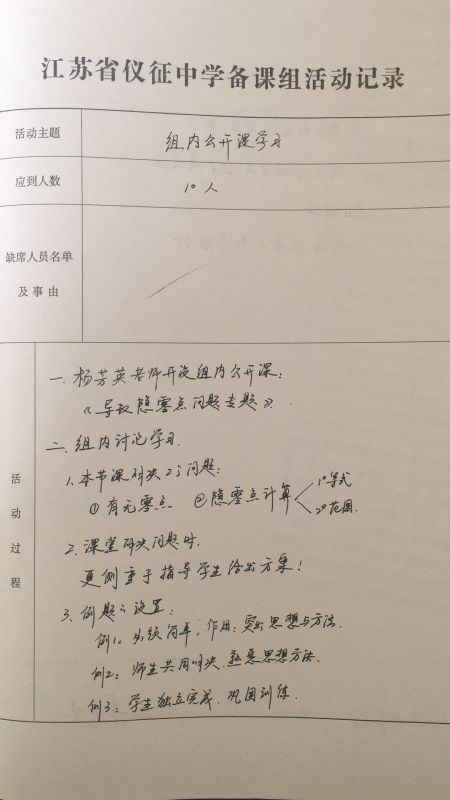 江苏省仪征中学备课组活动记录
活动主题 组内公开课学习
应到人数 10人
缺席人员名单
及事由
活动过程
一、杨芳英老师开设组内公开课:
《导数隐零点问题专题》.
二、组内讨论学习.
1、本节课解决2个问题:
①有无零点 ②隐零点计算 1°等式
2°范围.
2、课堂解决问题时,
更侧重于指导学生给出方案!
3、例题的设置:
例1:必须简单,作用:突出思想与方法.
例2:师生共同解决,熟悉思想方法.
例3:学生独立完成,巩固训练.